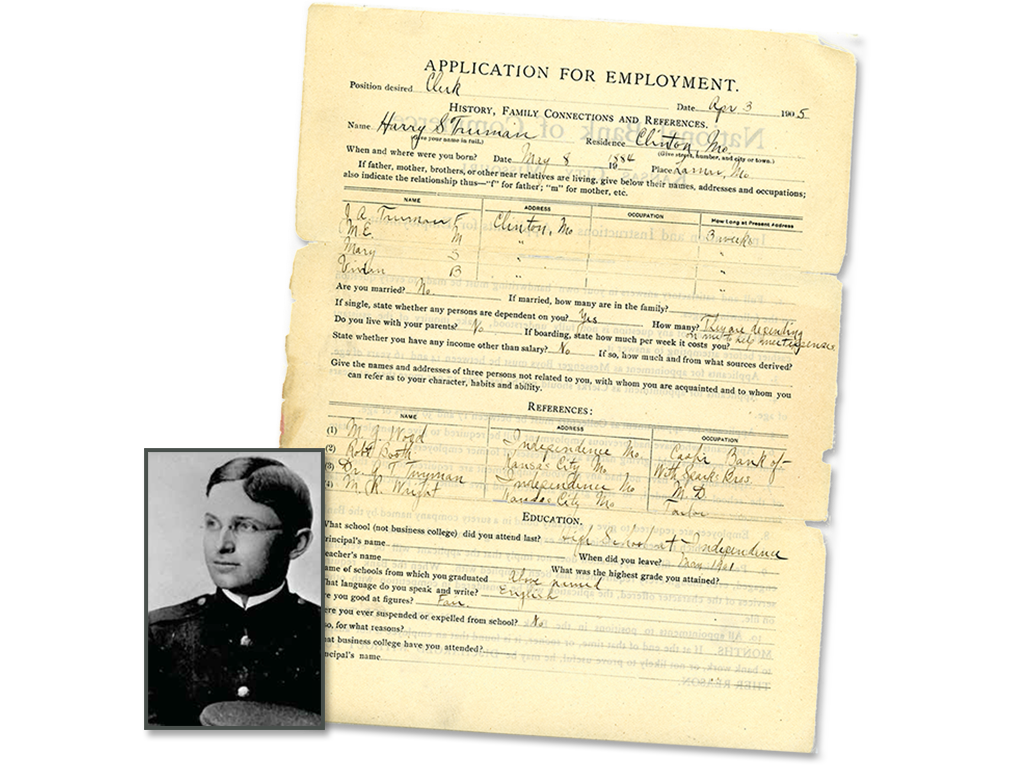 APPLICATION FOR EMPLOYMENT.
Position desired Clerk
Date Apr 3 1905
HISTORY, FAMILY CONNECTIONS AND REFERENCES.
Name Harry S Truman Residence Clinton, Mo.
(Give your name in full.) (Give street, number, and city or town.)
When and where were you born? Date May 8 1884 Place Lamar, Mo.
If father, mother, brothers, or other near relatives are living, give below their names, addresses and occupations;
also indicate the relationship thus—"f" for father; "m" for mother, etc.
NAME ADDRESS OCCUPATION How Long at Present Address
J. A. Truman F Clinton, Mo 3 weeks
M.E. M " "
Mary S " "
Vivian B " "
Are you married? No. If married, how many are in the family?
If single, state whether any persons are dependent on you? Yes How many? They are depending
on me to help meet expenses
Do you live with your parents? No If boarding, state how much per week it costs you?
State whether you have any income other than salary? No If so, how much and from what sources derived?
Give the names and addresses of three persons not related to you, with whom you are acquainted and to whom you
can refer as to your character, habits and ability.
REFERENCES:
NAME ADDRESS OCCUPATION
(1) Wood Independence Mo. Bank of
(2) Robt Booth Kansas City Mo. With Bros.
(3) Dr. G T Twyman Independence Mo M.D
M. R. Wright Kansas City Mo Tailor
EDUCATION.
What school (not business college) did you attend last? High School at Independence
Principal's name When did you leave? 1901
Teacher's name What was the highest grade you attained?
Name of schools from which you graduated Above named
What language do you speak and write? English
Are you good at figures? Fair
Were you ever suspended or expelled from school? No
so, for what reasons?
What business college have you attended?
Principal's name